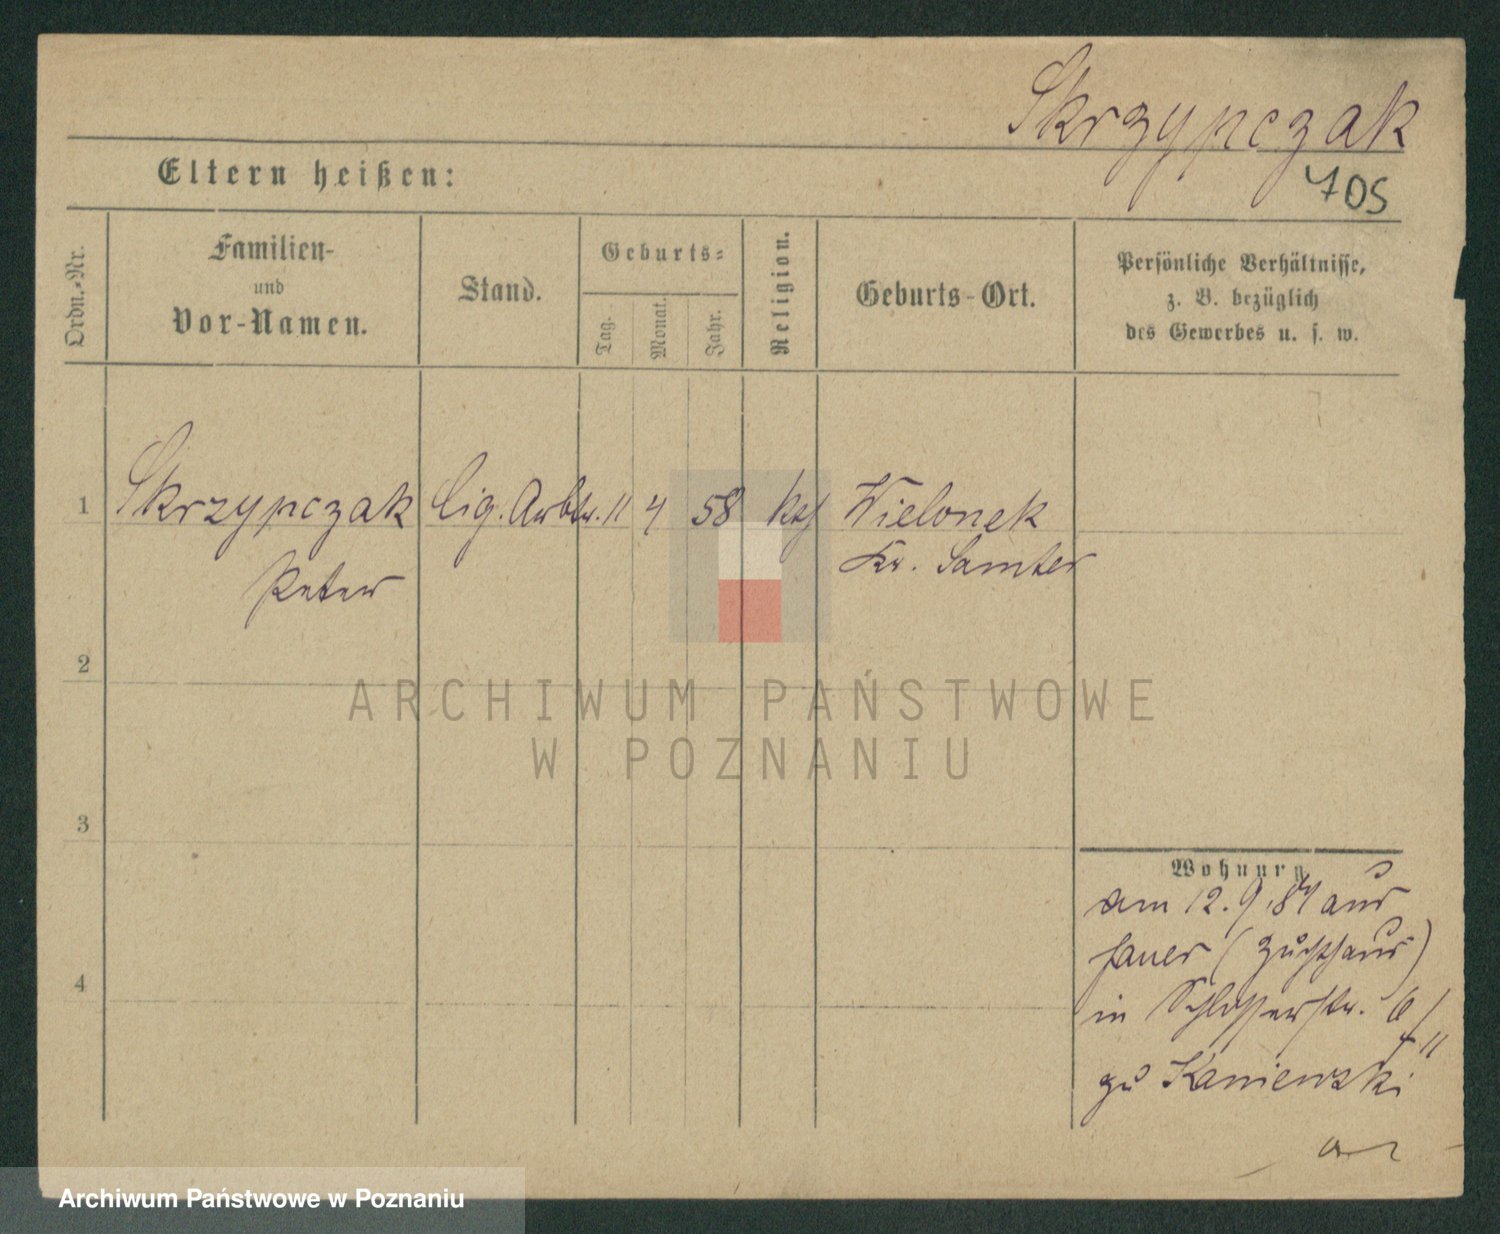 Skrzypczak
705
Eltern heißen:
Ordn.-Nr.
Familien-
und
Vor-Namen.
Stand.
Geburts-
Tag.
Monat.
Jahr.
Religion.
Geburts-Ort.
Persönliche Verhältnisse,
z. B. bezüglich
des Gewerbes u. s. w.
1 Skrzypczak Cig. Arbtr. 11 4 58 kth Wielonek
Peter Kr. Samter
2
ARCHIWUM PAŃSTWOWE
W POZNANIU
3
4
Wohnung
am 12.9.84 aus
Jauer (Zuchthaus)
in Schlosserstr. 6/II
zu Kaniewski
Archiwum Państwowe w Poznaniu